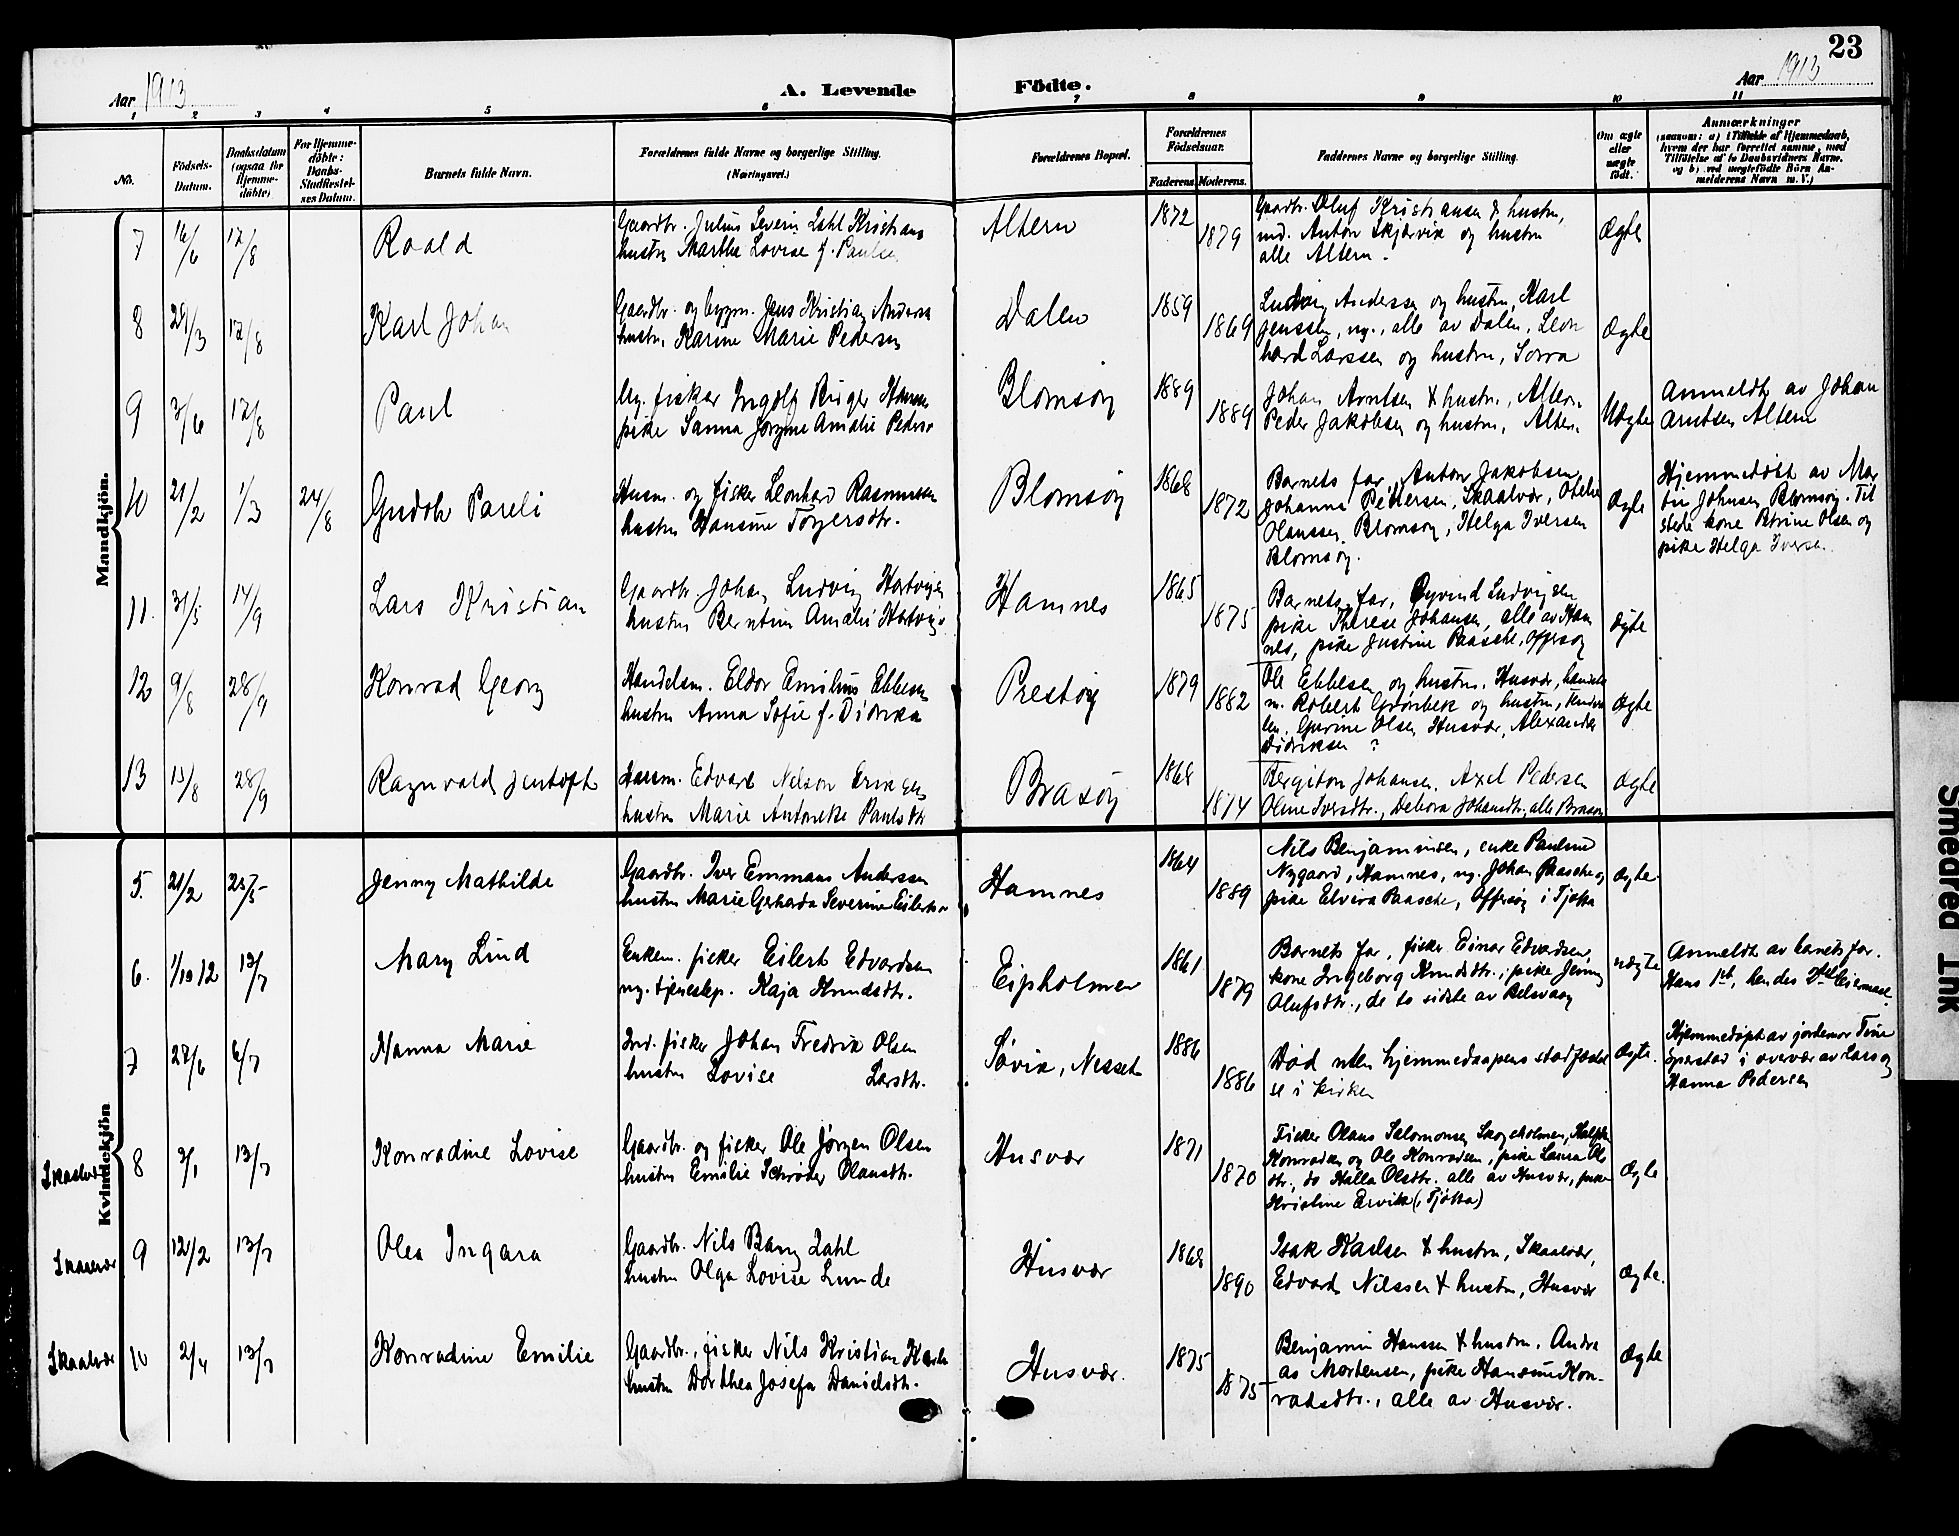 23
Aar 1913
A. Levende
Födte.
Aar 1913
1 2 3 4 5 6 7 8 9 10 11
No.
Födsels-
Datum.
Daabsdatum
(ogsaa for
Hjemme-
döbte)
For Hjemme-
döbte:
Daabs-
Stadfæstel-
ses Datum.
Barnets fulde Navn.
Forældrenes fulde Navne og borgerlige Stilling.
(Næringsvei.)
Forældrenes Bopæl.
Forældrenes
Födselsaar.
Faderens. Moderens.
Faddernes Navne og borgerlige Stilling.
Om ægte
eller
uægte
födt.
Anmærkninger
(saasom: a) i Tilfælde af Hjemmedaab,
hvem der har forrettet samme, med
Tilföielse af to Daabsvidners Navne,
og b) ved uægtefödte Börn An-
melderens Navn m. V.)
Mandkjön.
7 16/6 17/8 Roald
Gaardbr. Julius Severin Zahl Kristians
hustru Marthe Lovise f. Paulse
Altern 1872 1879
Gaardbr. Oluf Kristiansen & hustru,
ind. Anton Skjærvik og hustru
alle Altern.
Ægte
8 29/3 17/8 Karl Johan
Gaardbr. og bygm. Jens Kristian Anders
hustru Karine Marie Pedersen
Dalen 1859 1869
Ludvig Anderssen og hustru, Karl
Jenssen, ug., alle av Dalen, Leon
hard Larssen og hustru, Sorra
Ægte
9 3/6 17/8 Paul
Ug. fisker Ingolf Birger Hansen
pike Sanna Jørgine Amalie Peders
Blomsøy 1889 1889
Johan Arntsen & hustru, Altern.
Peder Jakobsen og hustru, Altern.
Uægte
Anmeldt av Johan
Arntsen Altern
10 21/2 1/3 24/8 Gudolv Pareli
Husm. og fisker Leonhard Rasmussen
hustru Hansine Torgersdtr.
Blomsøy 1868 1872
Barnets far, Anton Jakobsen
Johanna Pettersen, Skaalvær, Otelie
Olaussen Blomsøy, Helga Iversen
Blomsøy.
Ægte
Hjemmedøbt av Mar
tin Johnsen Blomsøy. Til
stede kone Petrine Olsen og
pike Helga Iversen.
11. 31/5 14/9 Lars Kristian
Gaardbr. Johan Ludvig Hartvigsen
hustru Berntine Amalie Hartvigs
Hamnes 1865 1875
Barnets far, Øyvind Ludvigsen
pike Therese Johansen, alle av Ham
nes, pike Justine Paasche, Offersøy
Ægte
12 9/8 28/9 Konrad Georg
Handelsm. Eldor Emilius Ebbesen
hustru Anna Sofie f. Didriks
Prestøy 1879 1882
Ole Ebbesen og hustru, Husvær, handels
m. Robert Grønbeck og hustru,
Gurine Olsen Husvær, Alexander
Didriksen ?
Ægte
13 15/8 28/9 Ragnvald Jentoft
Husm. Edvart Nelson Eriksen
hustru Marie Antonette Paulsdtr
Brasøy 1868 1874
Bergiton Johansen, Axel Pedersen
Oline Iversdtr., Debora Johansdtr., alle Brasøy
Ægte
Kvindekjön
5. 21/2 25/5 Jenny Mathilde
Gaardbr. Iver Emmans Anderssen
hustru Marie Gerharda Severine Eilertsen
Hamnes 1864 1889
Nils Benjaminsen, enke Pauline
Nygaard, Hamnes, ug. Johan Paasche og
pike Elvira Paasche, Offersøy i Tjøtta
Ægte
6. 1/10 12 13/7 Mary Lind
Enkem. fisker Eilert Edvardsen
ug. tjenestep. Kaja Knudsdtr.
Eipholmen 1861 1879
Barnets far, fisker Einar Edvardsen,
kone Ingeborg Knudsdtr., pike Jenny
Olufsdtr., de to sidste av Belsvaag
uægte
Anmeldt av barnets far.
Hans 1st, hendes 2det leiermaal
7 27/6 6/7 Hanna Marie
Ind. fisker Johan Fredrik Olsen
hustru Lovise Larsdtr.
Søvik, Nesset 1886 1886
Død uten hjemmedaapens stadfæstel
se i kirken
Ægte.
Hjemmedøpt av jordemor Trine
Sperstad i overvær av Lars og
Hanna Pedersen
Skaalvær 8 3/1 13/7 Konradine Lovise
Gaardbr. og fisker Ole Jørgen Olsen
hustru Emilie Schrøder Olausdtr.
Husvær 1871 1870
Fisker Olaus Salomonsen Skogsholmen,
Konradsen og Ole Konradsen, pike Laura Ols
dtr., do Halla Olsdtr. alle av Husvær, pike
Kristine Ervik (Tjøtta)
Ægte
Skaalvær 9 12/2 13/7 Olea Ingara
Gaardbr. Nils Bang Zahl
hustru Olga Lovise Lunde
Husvær 1868 1890
Isak Karlsen & hustru, Skaalvær,
Edvard Nilssen & hustru, Husvær
Ægte.
Skaalvær 10 2/4 13/7 Konradine Emilie
Gaardbr., fisker Nils Kristian Karls
hustru Dorthea Josefa Danielsdtr.
Husvær. 1875 1875
Benjamin Hanssen & hustru, Andre
as Mortensen, pike Hansine Kon-
radsdtr., alle av Husvær.
Ægte
Smeared Ink